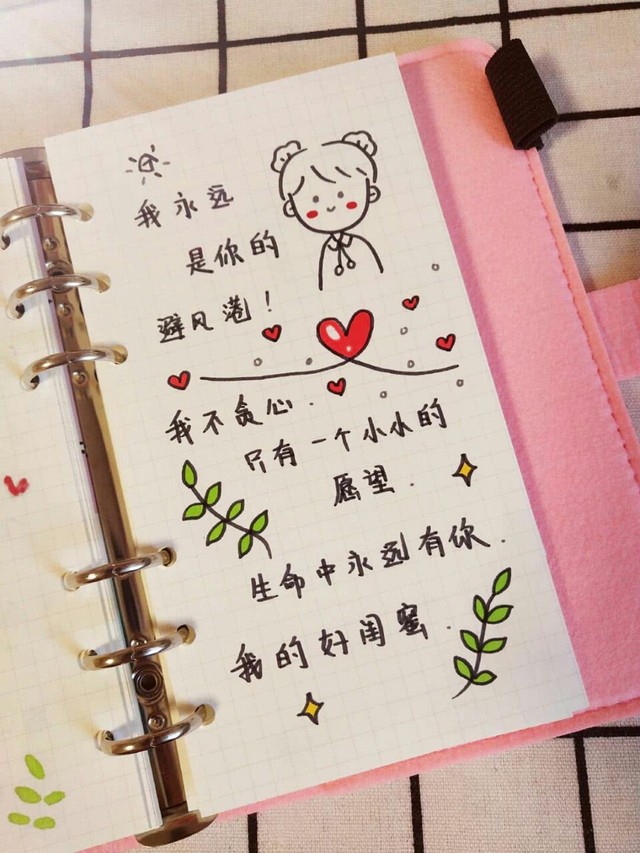 我永远
是你的
避风港！
我不贪心.
只有一个小小的
愿望.
生命中永远有你.
我的好闺蜜.